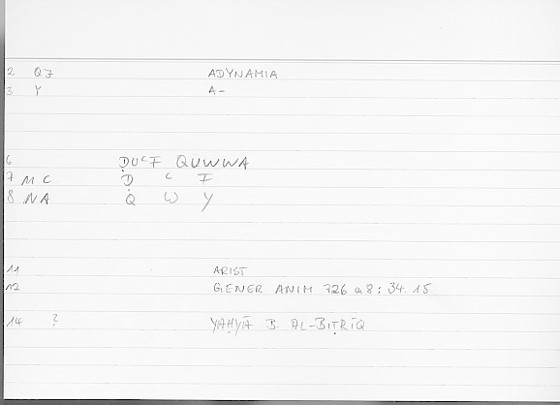 2 QJ ADYNAMIA
3 Y A-
6 ḌUᶜF QUWWA
7 MC Ḍ ᶜ F
8 NA Q W Y
11 ARIST
12 GENER ANIM 726 a 8 : 34.15
14 ? YAḤYĀ B AL-BIṬRĪQ